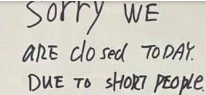 Sorry WE
ARE closed TODAY.
DUE TO SHORT PEOPLE.